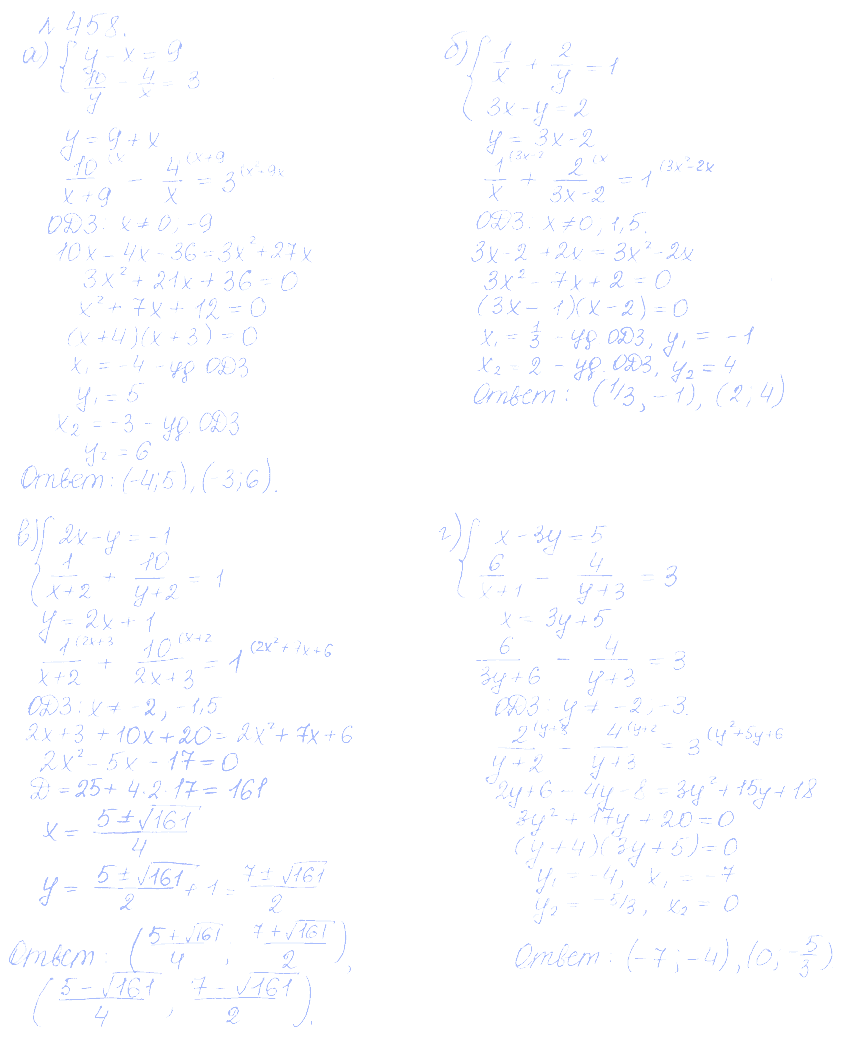 № 458.
а) { y - x = 9
10/y - 4/x = 3
y = 9 + x
10/(x+9) (x - 4/x (x+9 = 3 (x²+9x
ОДЗ: x ≠ 0, -9
10x - 4x - 36 = 3x² + 27x
3x² + 21x + 36 = 0
x² + 7x + 12 = 0
(x+4)(x+3) = 0
x₁ = -4 - уд. ОДЗ
y₁ = 5
x₂ = -3 - уд. ОДЗ
y₂ = 6
Ответ: (-4; 5), (-3; 6).
б) { 1/x + 2/y = 1
3x - y = 2
y = 3x - 2
1/x (3x-2 + 2/(3x-2) (x = 1 (3x²-2x
ОДЗ: x ≠ 0, 1,5.
3x - 2 + 2x = 3x² - 2x
3x² - 7x + 2 = 0
(3x - 1)(x - 2) = 0
x₁ = 1/3 - уд. ОДЗ, y₁ = -1
x₂ = 2 - уд. ОДЗ, y₂ = 4
Ответ: (1/3, -1), (2; 4)
в) { 2x - y = -1
1/(x+2) + 10/(y+2) = 1
y = 2x + 1
1/(x+2) (2x+3 + 10/(2x+3) (x+2 = 1 (2x²+7x+6
ОДЗ: x ≠ -2, -1,5
2x + 3 + 10x + 20 = 2x² + 7x + 6
2x² - 5x - 17 = 0
D = 25 + 4·2·17 = 161
x = (5 ± √161)/4
y = (5 ± √161)/2 + 1 = (7 ± √161)/2
Ответ: ((5+√161)/4, (7+√161)/2),
((5-√161)/4, (7-√161)/2).
г) { x - 3y = 5
6/(x+1) - 4/(y+3) = 3
x = 3y + 5
6/(3y+6) - 4/(y+3) = 3
ОДЗ: y ≠ -2, -3.
2/(y+2) (y+3 - 4/(y+3) (y+2 = 3 (y²+5y+6
2y + 6 - 4y - 8 = 3y² + 15y + 18
3y² + 17y + 20 = 0
(y+4)(3y+5) = 0
y₁ = -4, x₁ = -7
y₂ = -5/3, x₂ = 0
Ответ: (-7; -4), (0, -5/3)